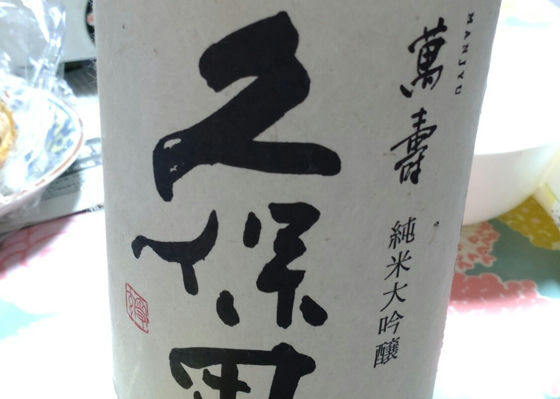 萬壽
MANJYU
純米大吟醸
久保田